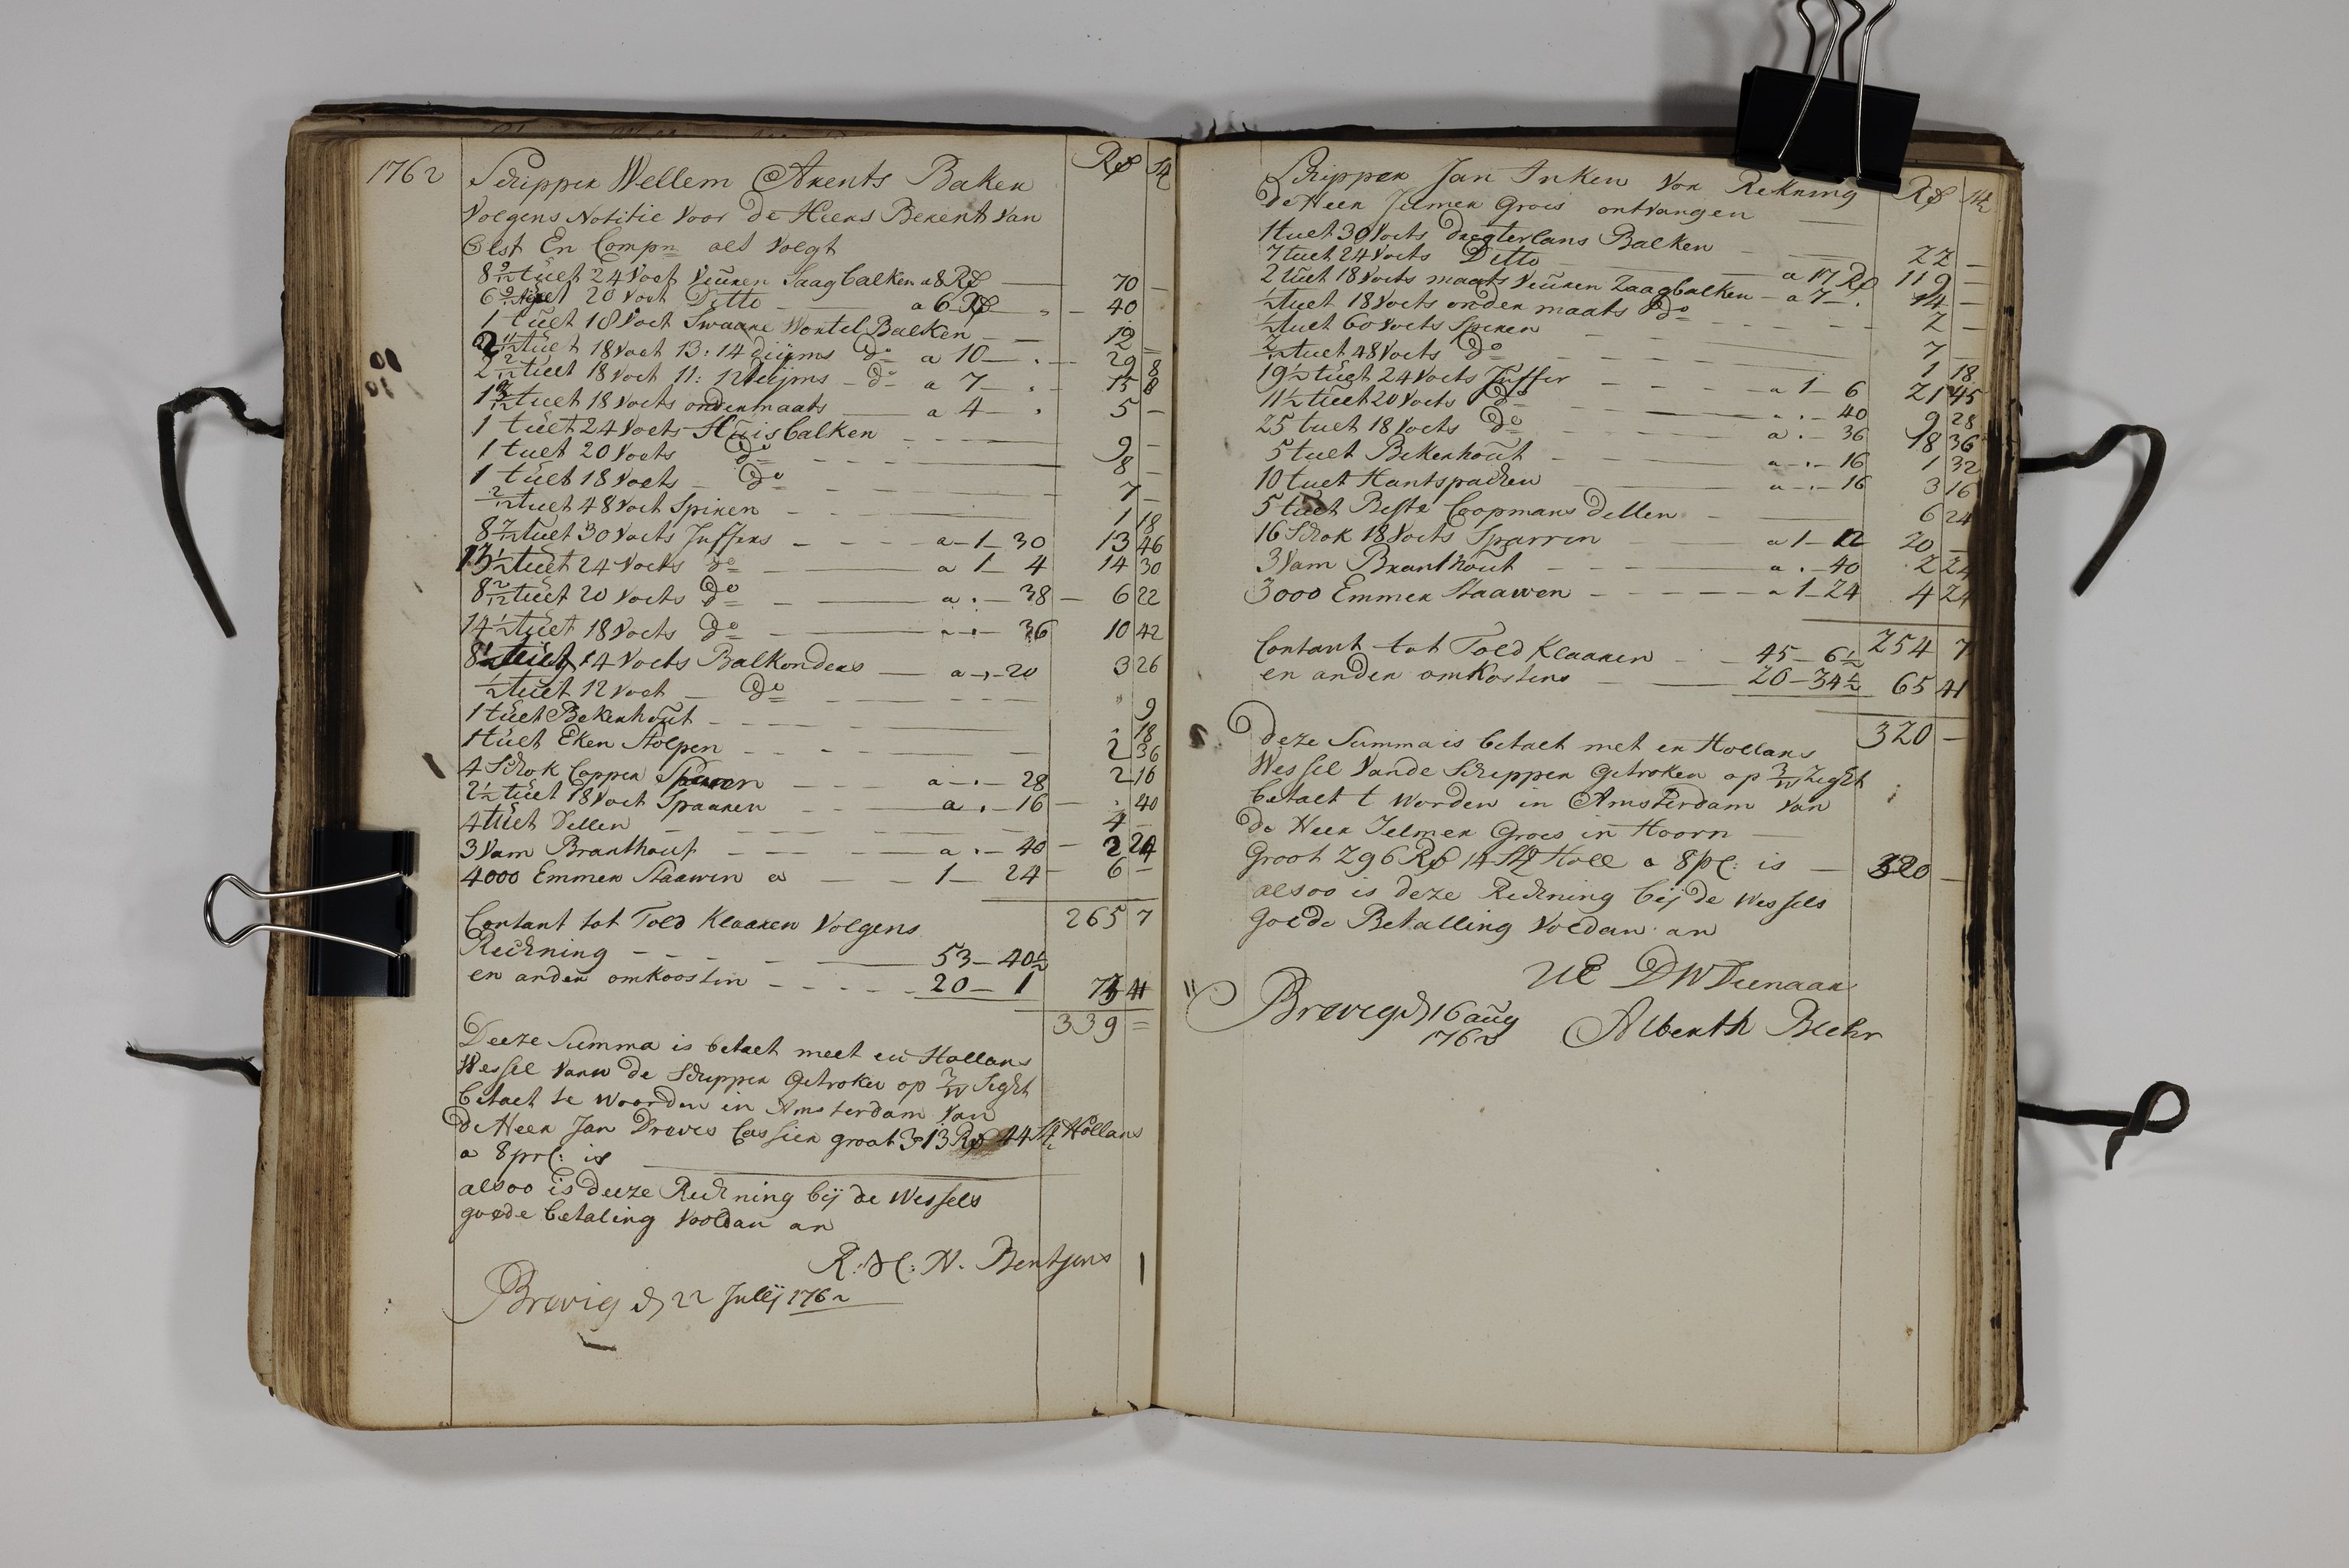 1762
Schipper Wellem Arents Baken Rd St
volgens Notitie voor de Heers Berent van
Elst En Compn als volgt
8 9/12 tuelt 24 Voet Veuren Saagbalken a 8 Rd 70 -
6 9/12 20 Voet Ditto a 6 Rd 40
1 tuelt 18 Voet Swaare Wortel Balken 12
2 11/12 tuelt 18 Voet 13:14 duijms do a 10 29 8
2 2/12 tuelt 18 Voet 11:12 duijms do a 7 15 8
1 3/12 tuelt 18 Voets ondermaats a 4 5 -
1 tuelt 24 Voets Huisbalken 9 -
1 tuelt 20 Voets do 8 -
1 tuelt 18 Voets do 7 -
2/12 tuelt 48 Voet Spiren 1 18
8 7/12 tuelt 30 Voets Juffers a 1 30 13 46
13 1/2 tuelt 24 Voets do a 1 4 14 30
8 2/12 tuelt 20 Voets do a . 38 6 22
14 1/2 tuelt 18 Voets do a . 36 10 42
8 1/2 tuelt 14 Voets Balkonders a . 20 3 26
1/2 tuelt 12 Voet do 9
1 tuelt Bekenhout . 18
1 tuelt Eken Stolpen 2 36
4 Schok Copper Sparren a . 28 2 16
2 1/2 tuelt 18 Voet Spaaren a . 16 . 40
4 tuelt Dellen 4 -
3 Vam Branthout a . 40 2 24
4000 Emmer Staawen a 1 24 6 -
265 7
Contant tot Told Klaaren Volgens
Rechning 53 - 40 1/2
en ander omkoosten 20 - 1 73 41
339 =
Deeze Summa is betaelt meet en Hollans
Wessel vann de Schipper Getroken op 3/W Sight
betaelt te woorden in Amsterdam van
de Heer Jan Drewes Cassier groot 313 Rd 44 St Hollans
a 8 prC: is
alsoo is deeze Rechning bij de Wessels
goede betaling Voldan an
R: H: N. Bentsens
Brevig d 22 Julij 1762
Schipper Jan Inken Vor Rekning Rd St
de Heer Jelmer Groes ontvangen
1 tuelt 30 Voets dregterlans Balken 22 -
7 tuelt 24 Voets Ditto a 17 Rd 119 -
2 tuelt 18 Voets maats Veuren Zaagbalken - a 7 - . 14 -
1/2 tuelt 18 Voets onder maats do 2 -
1/2 tuelt 60 Voets Spiren 7 -
2/12 tuelt 48 Voets do 1 18
19 1/2 tuelt 24 Voets Juffer a 1 - 6 21 45
11 1/2 tuelt 20 Voets do a . - 40 9 28
25 tuelt 18 Voets do a . - 36 18 36
5 tuelt Bekenhout a . - 16 1 32
10 tuelt Hantspachen a . - 16 3 16
5 tuelt Beste Coopmans dellen 6 24
16 Schok 18 Voets Sparren a 1 - 12 20 -
3 Vam Branthout a . - 40 2 24
3000 Emmer Staawen a 1 - 24 4 24
254 7
Contant tot Told Klaaren 45 - 6 1/2
en ander omkostens 20 - 34 1/2 65 41
320 -
Deze Summa is betaelt met en Hollans
Wessel vande Schipper Getroken op 3/W Zight
betaelt t worden in Amsterdam van
de Heer Jelmer Groes in Hoorn
Groot 296 Rd 14 St Holl a 8 pC: is 320 -
alsoo is deze Rechning bij de Wessels
goede Betalling Voldan an
UE DW Dienaar
Brevig d 16 aug
1762
Alberth Blehr